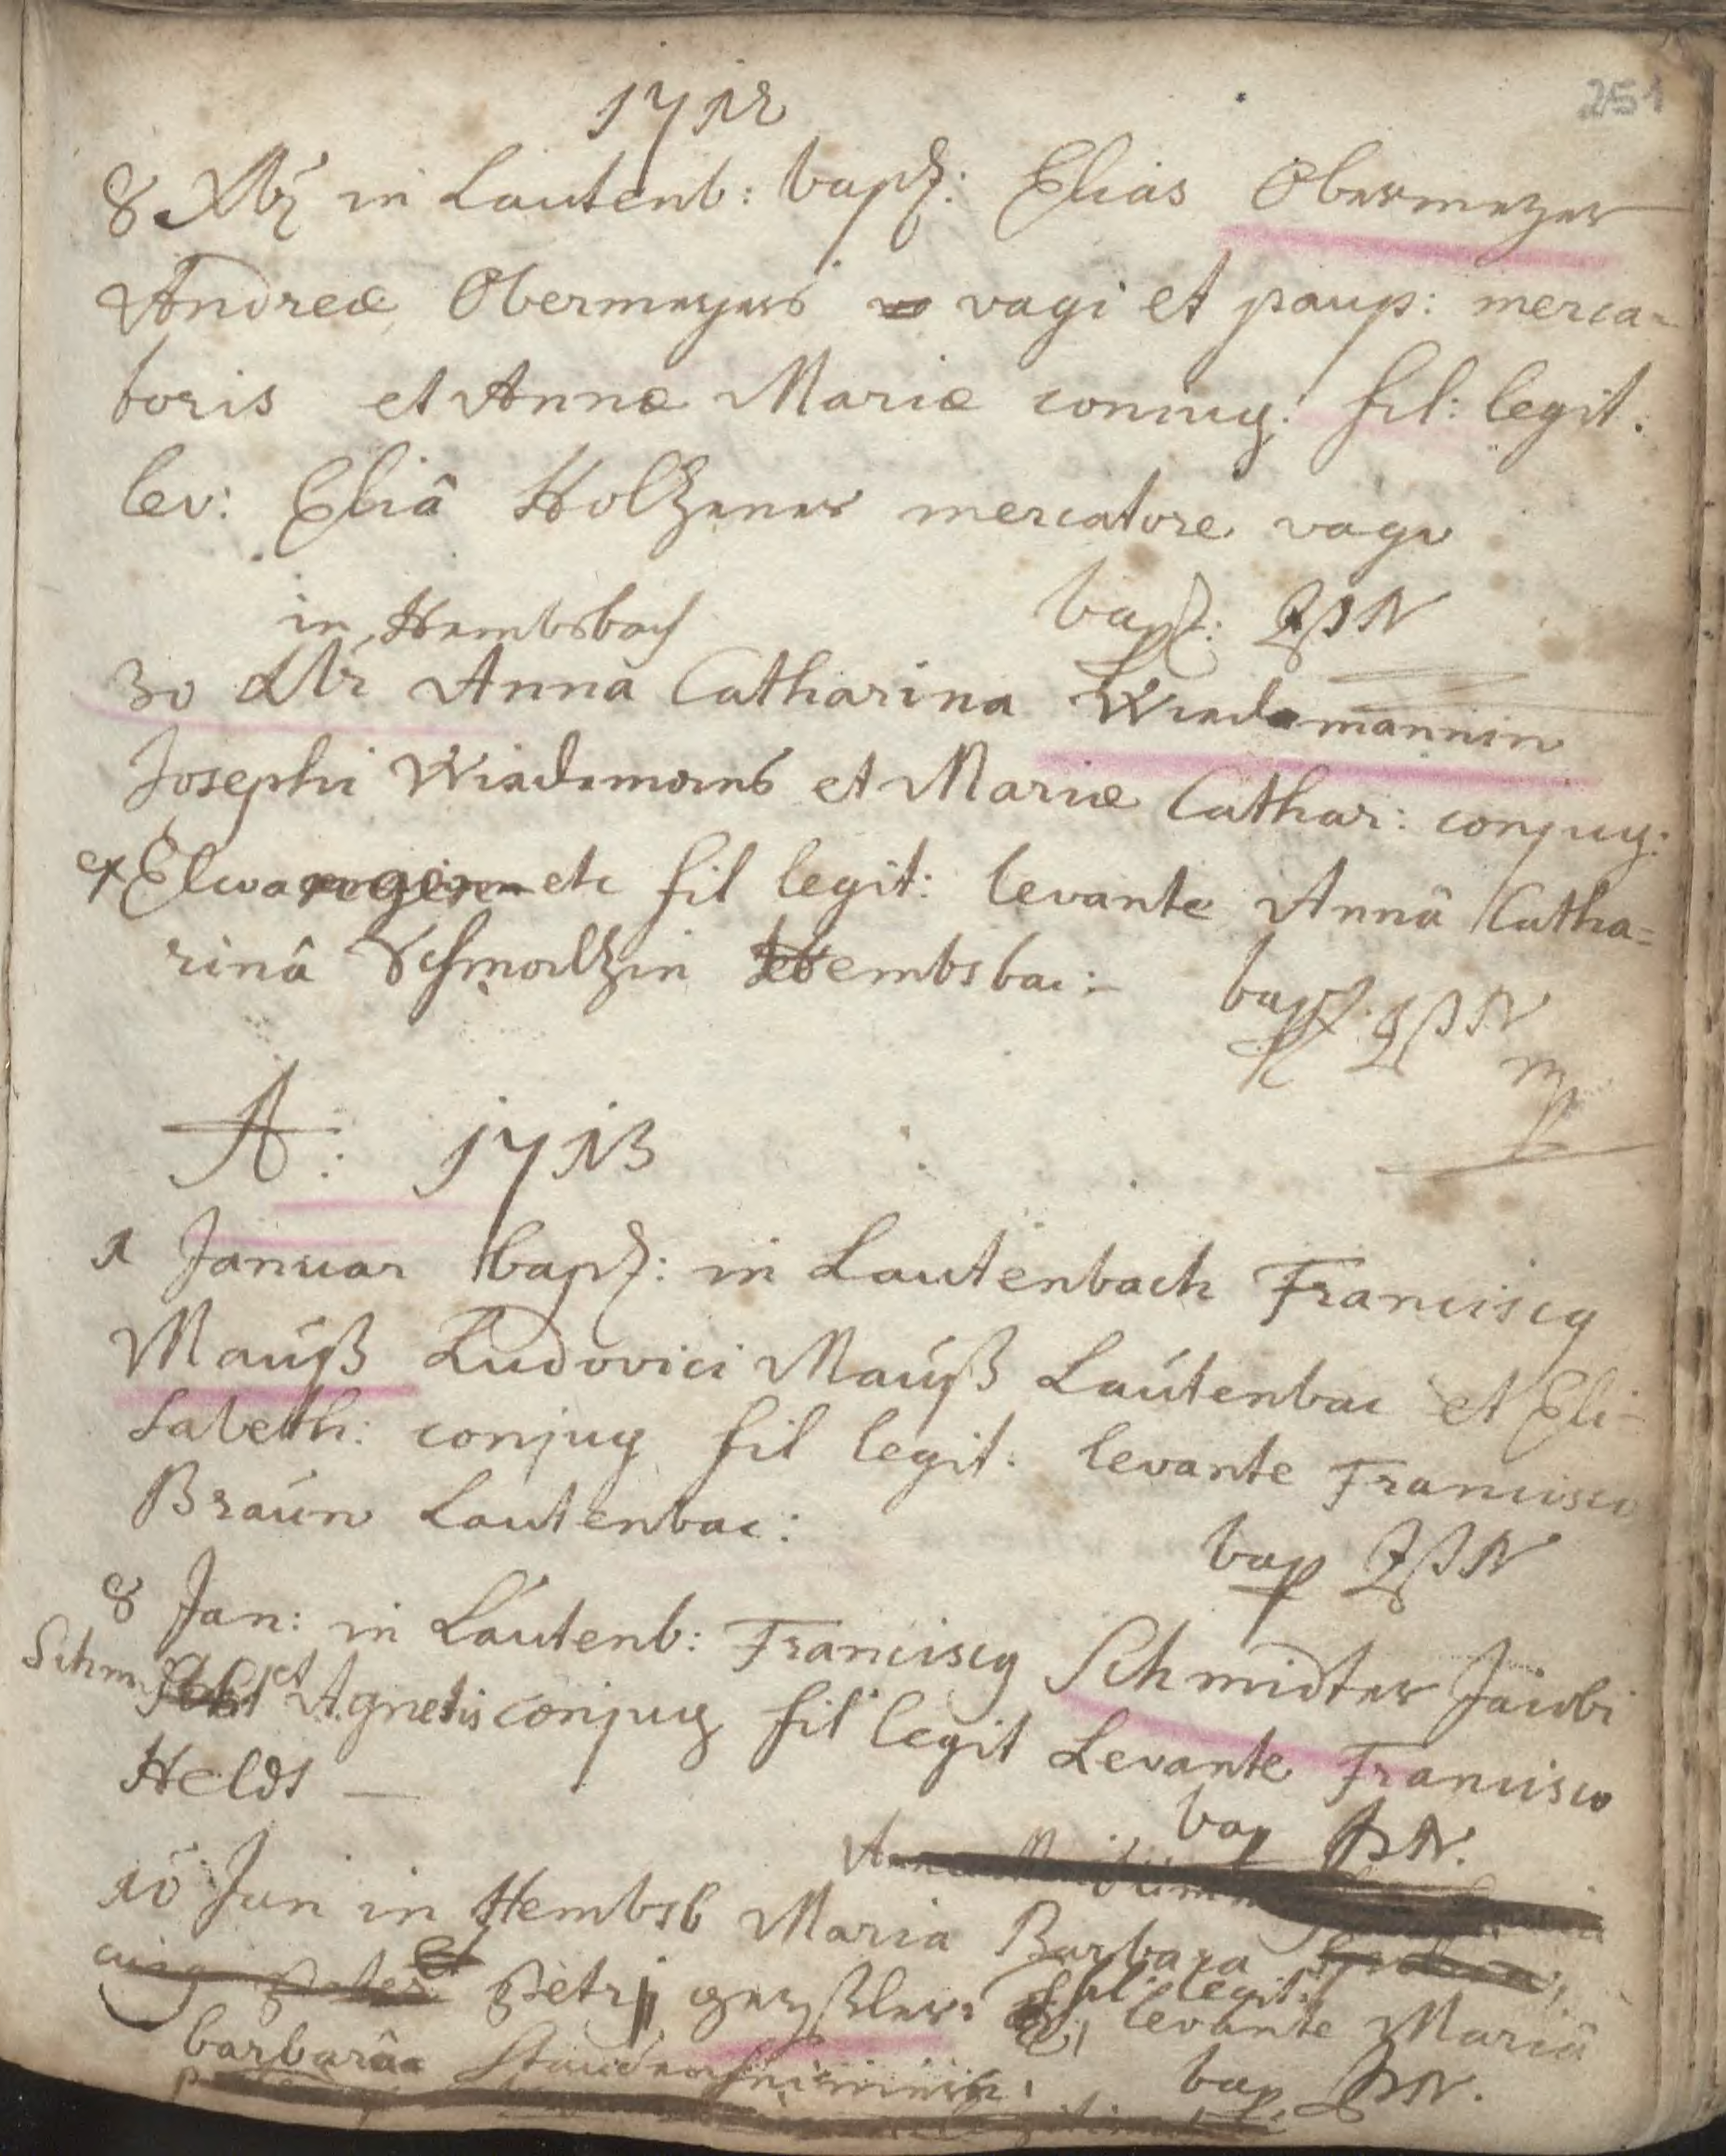 251
1712
8 Xbr in Lautenb: bapt: Elias Obermeyer
Andreæ Obermeyers vagi et paup: merca-
toris et Annæ Mariæ coniug: fil: legit.
lev: Eliâ Holtzener mercatore vago
bapt: JPN
in Hembsbach
30 Xbr Anna Catharina Wiedemannin
Josephi Wiedemans et Mariæ Cathar: conjug:
ex Elwangen etc fil legit: levante Annâ Catha=
rinâ Schmaltzin Hembsbac:
bapt JPN
A: 1713
1 Januar bapt: in Lautenbach Franciscq
Mauß Ludovici Mauß Lautenbac et Eli-
sabeth: conjug fil legit: levante Francisco
Braun Lautenbac:
bap JPN
8 Jan: in Lautenb: Franciscq Schmidter Jacobi
Schm et Agnetis conjug fil legit Levante Francisco
Heldt —
bap JPN.
10 Jan in Hembsb Maria Barbara
Petri fil legit: levante Mariâ
barbarâ
bap JPN.